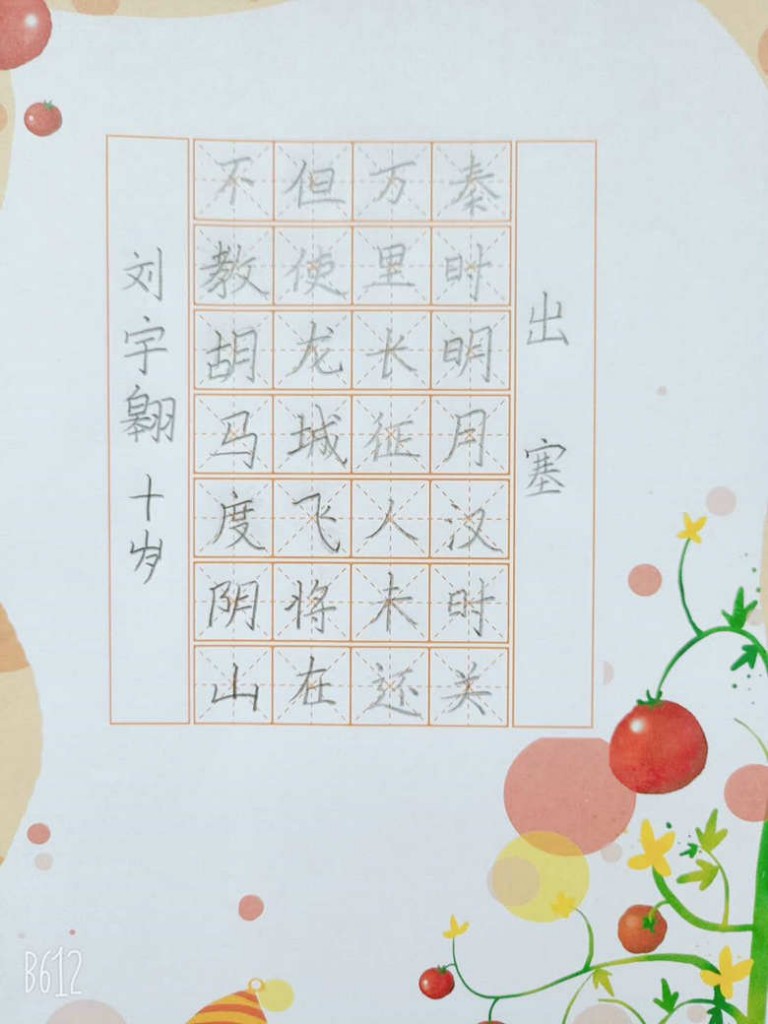 出塞
秦时明月汉时关
万里长征人未还
但使龙城飞将在
不教胡马度阴山
刘宇翱 十岁
B612